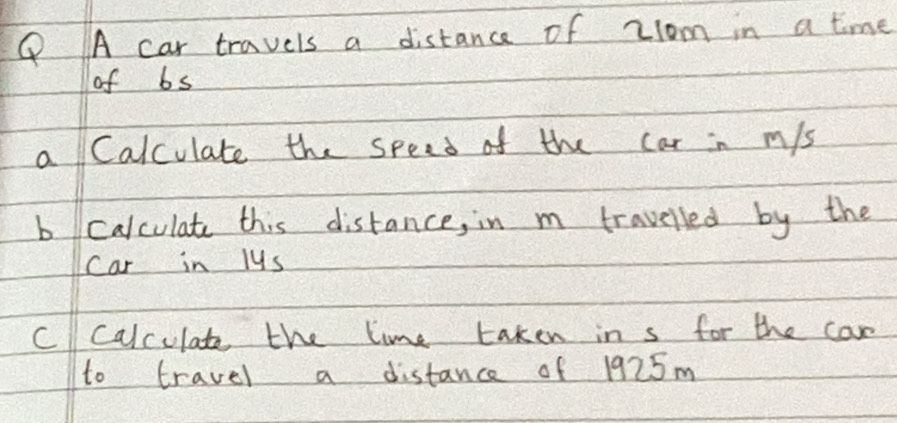 Q A car travels a distance of 210m in a time
of 6s
a Calculate the speed of the car in m/s
b Calculate this distance, in m travelled by the
car in 14s
C Calculate the time taken in s for the car
to travel a distance of 1925m